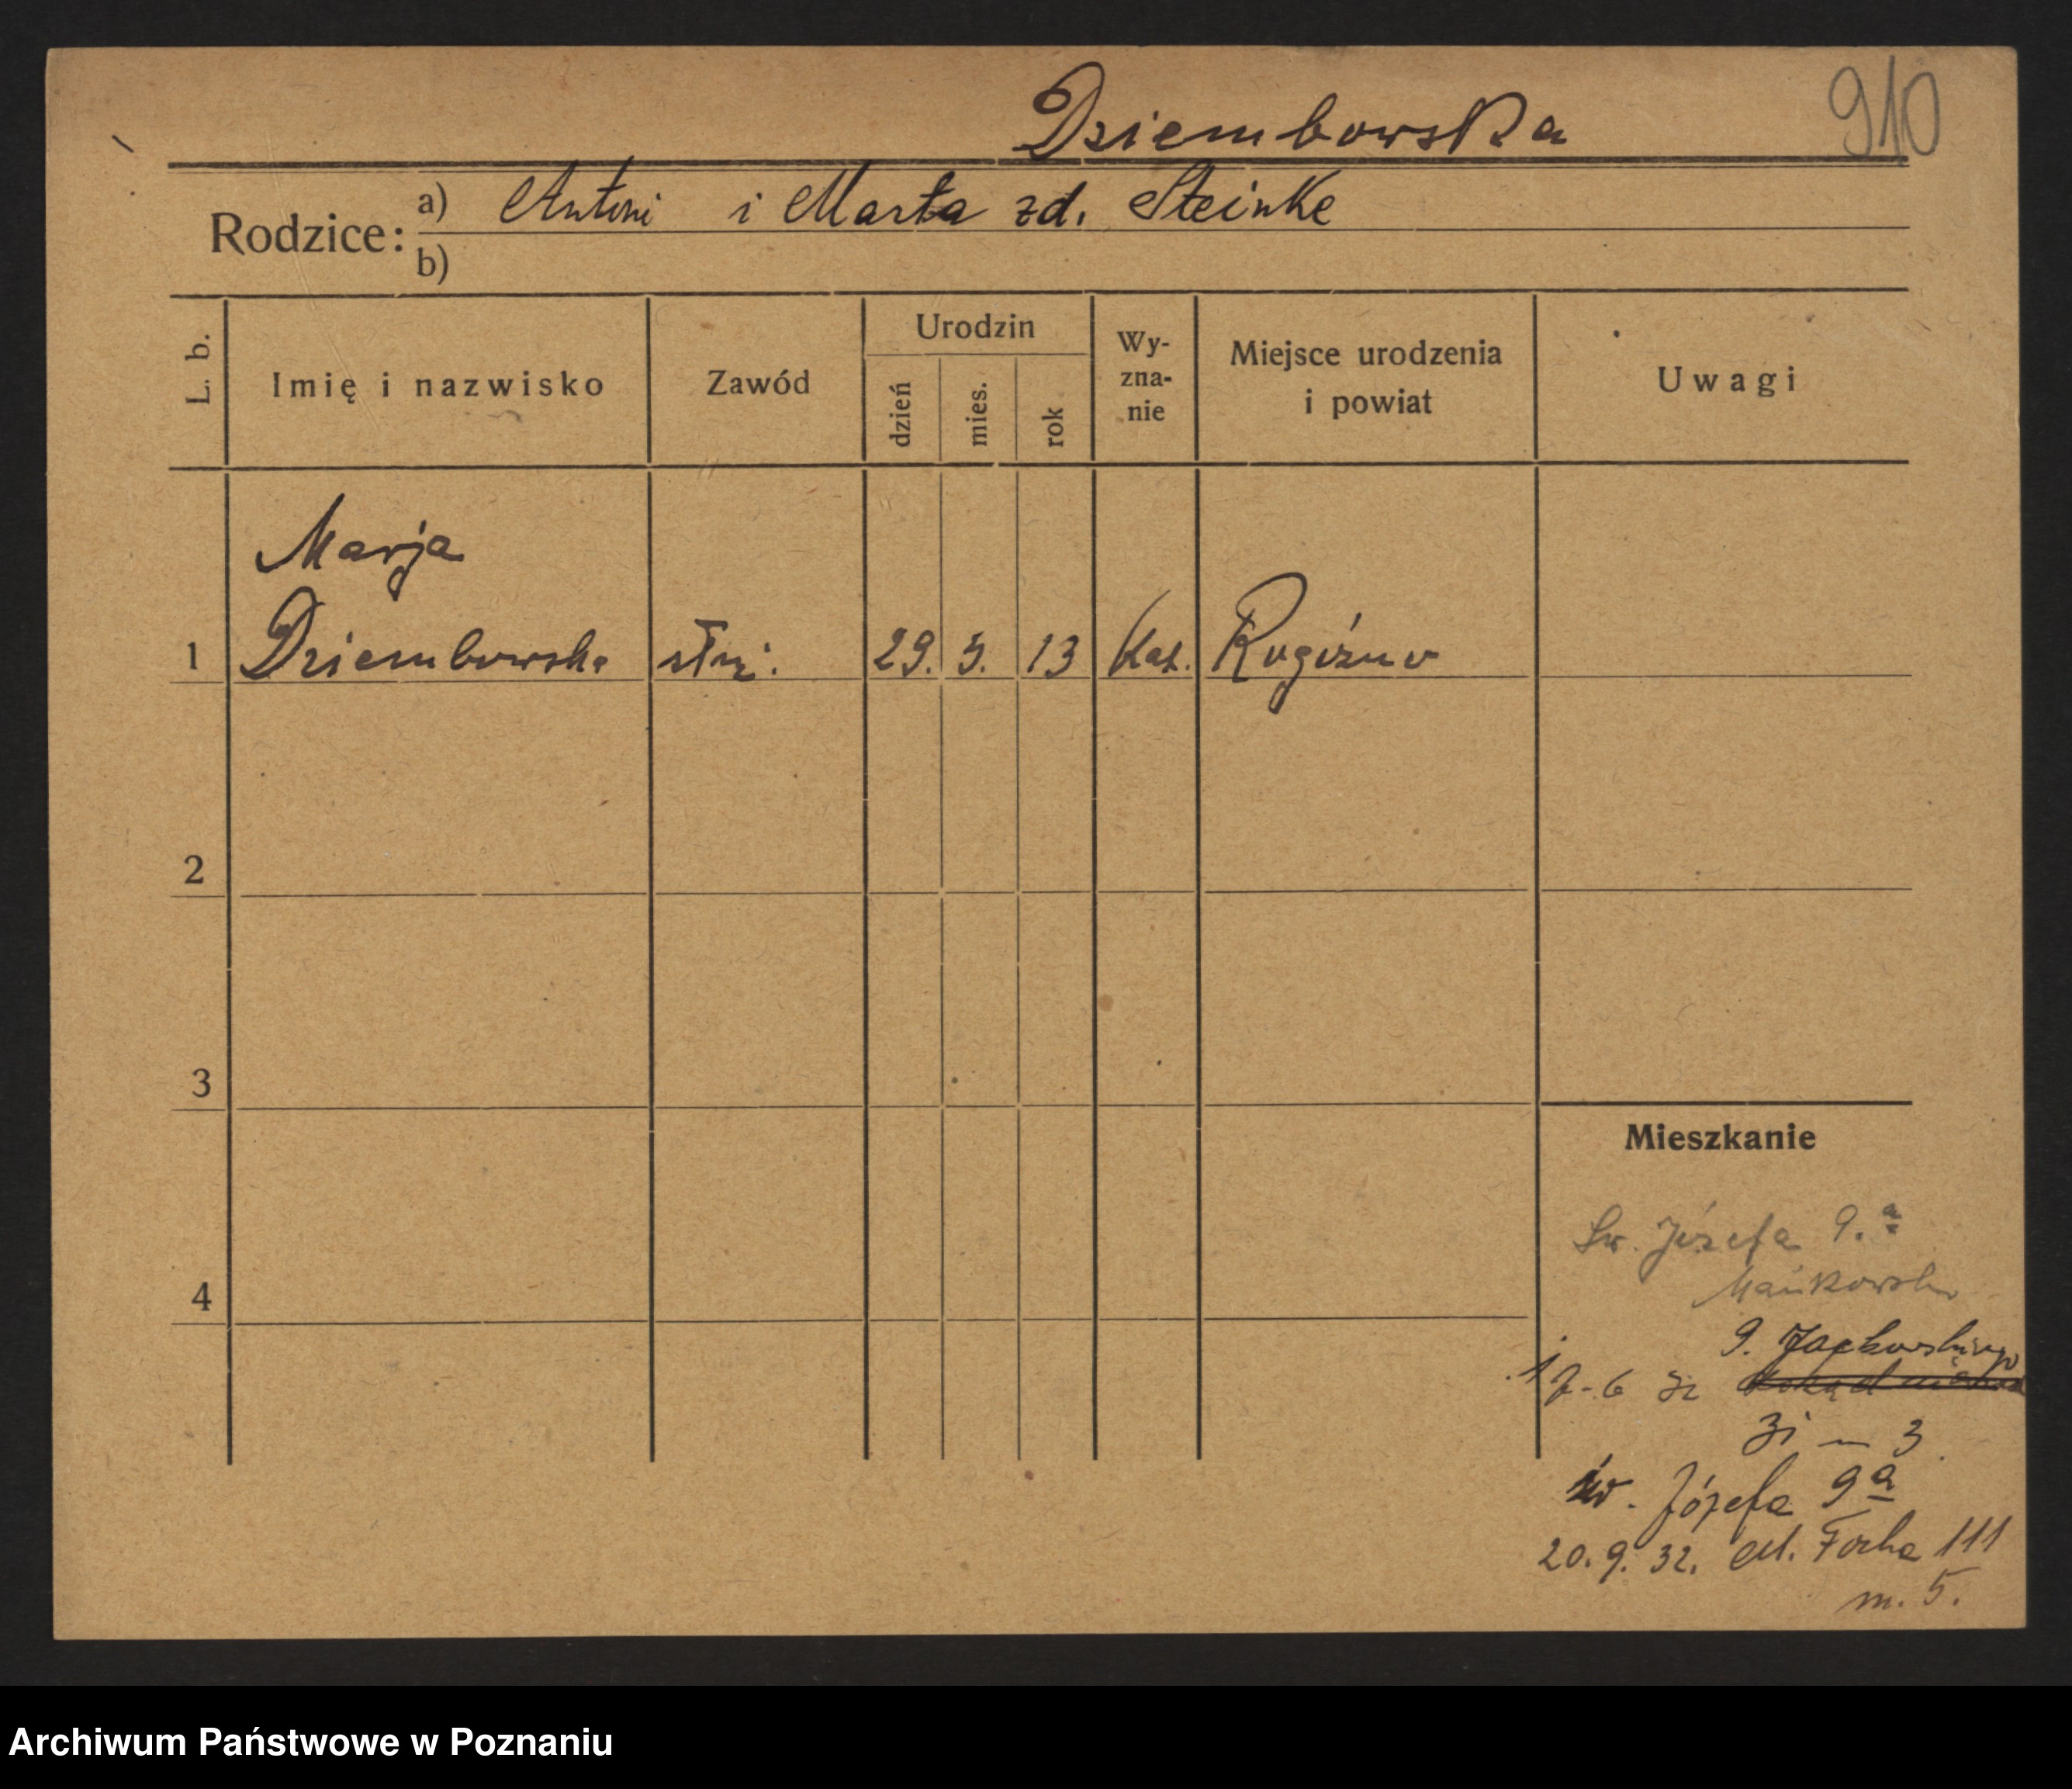 Dziembowska 910
Rodzice: a) Antoni i Marta zd. Steinke
b)
L. b. Imię i nazwisko Zawód Urodzin dzień mies. rok Wyznanie Miejsce urodzenia i powiat Uwagi
Marja
1 Dziembowska służ. 29. 5. 13 Kat. Rogóźno
2
3
Mieszkanie
4
Św. Józefa 9.a
Mańkowska
9. Jackowskiego
17-6 32
31 — 3
św. Józefa 9a
20. 9. 32. M. Focha 111
m. 5.
Archiwum Państwowe w Poznaniu